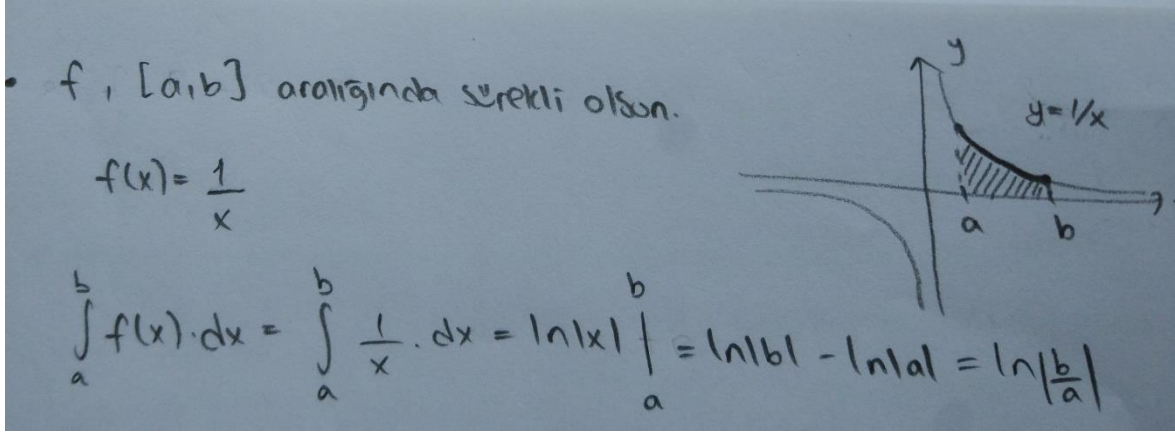 • f, [a,b] aralığında sürekli olsun.
y
y=1/x
f(x)= 1/x
a b
∫_a^b f(x)·dx = ∫_a^b 1/x · dx = ln|x| |_a^b = ln|b| - ln|a| = ln|b/a|